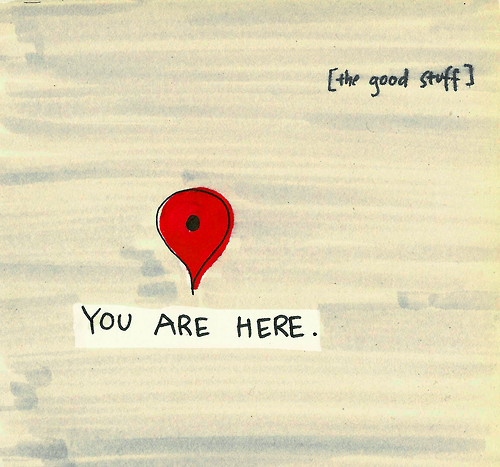 [the good stuff]
YOU ARE HERE.